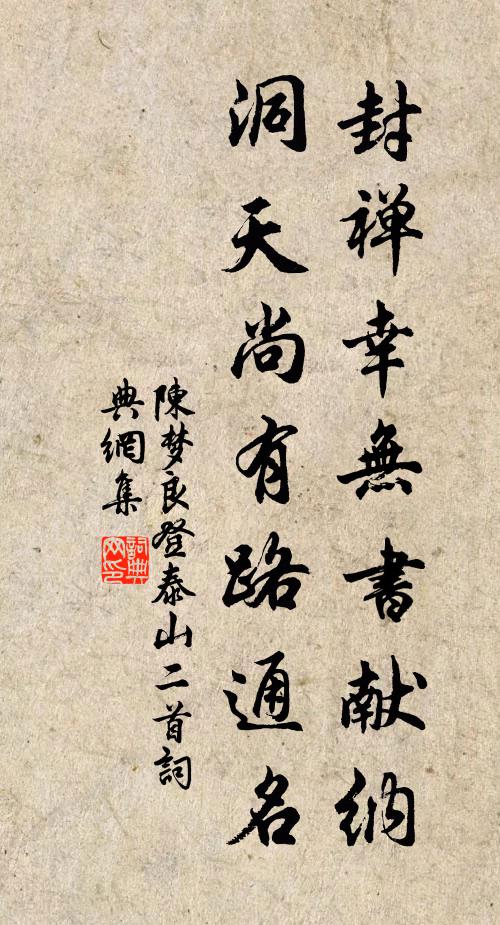 封禅幸無書献纳
洞天尚有路通名
陳梦良登泰山二首詞
典網集
詞典
网印